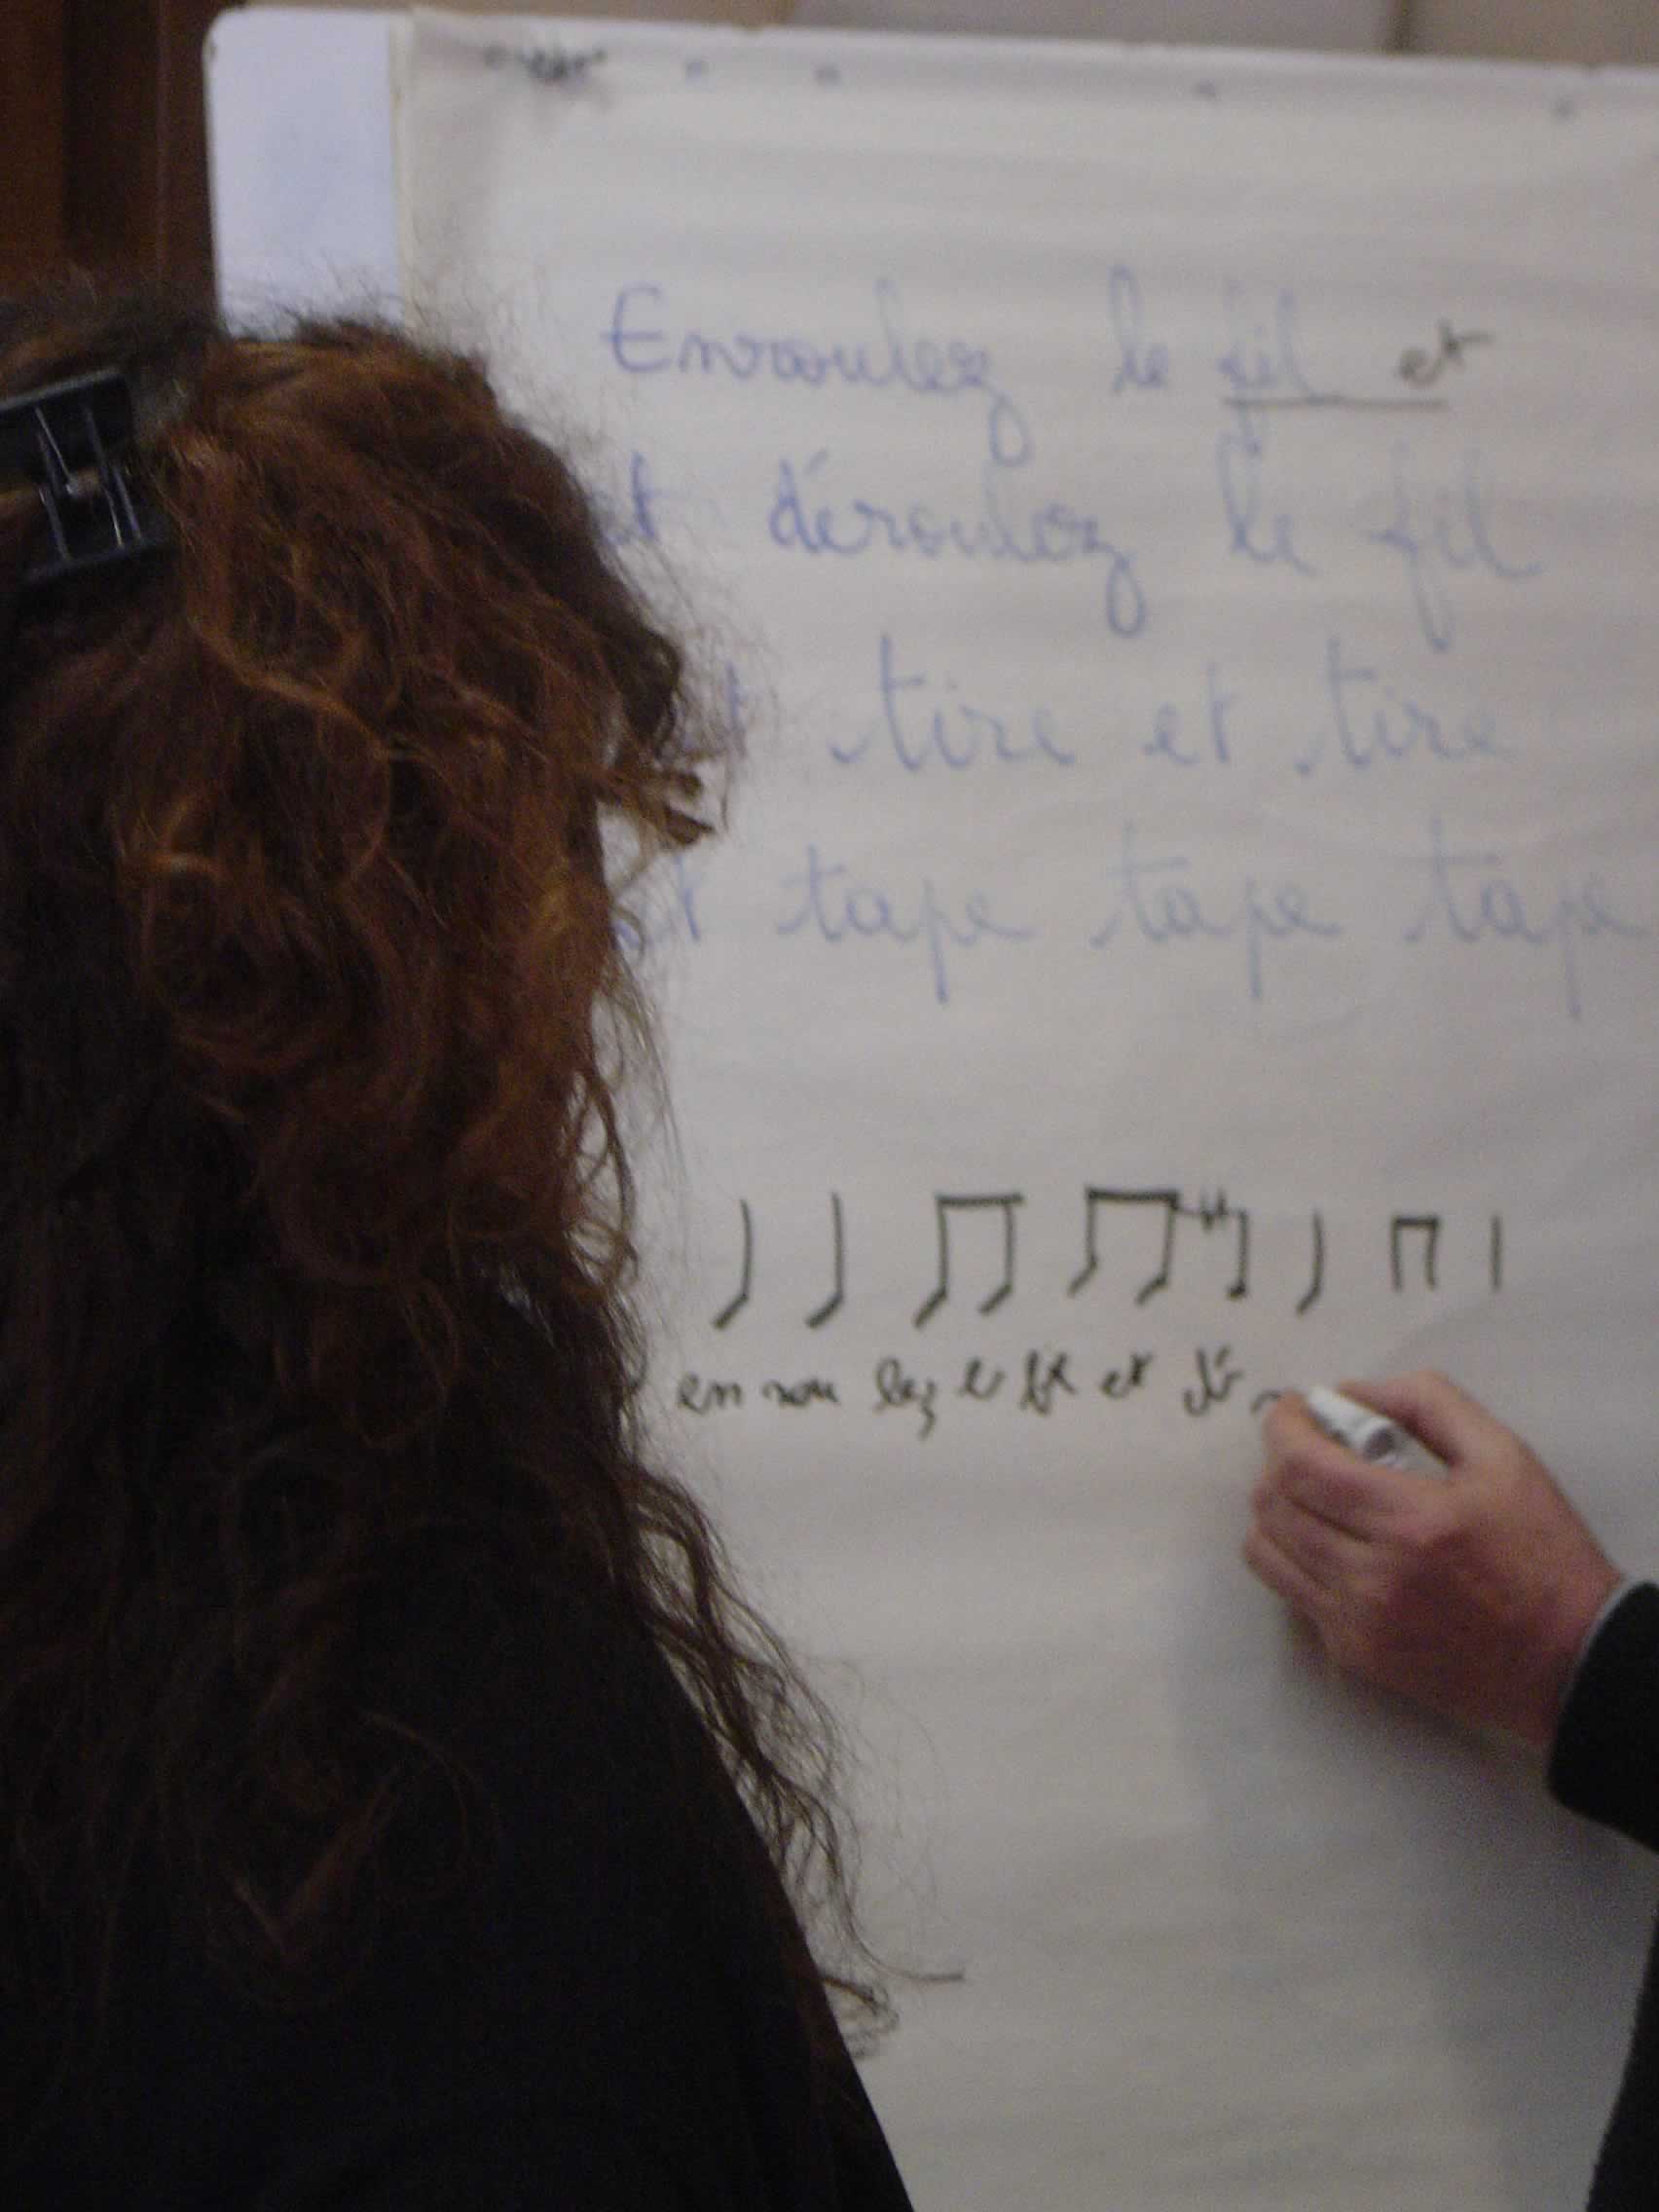 Enroulez le fil et
et déroulez le fil
et tire et tire
et tape tape tape
en rou lez le fil et dé